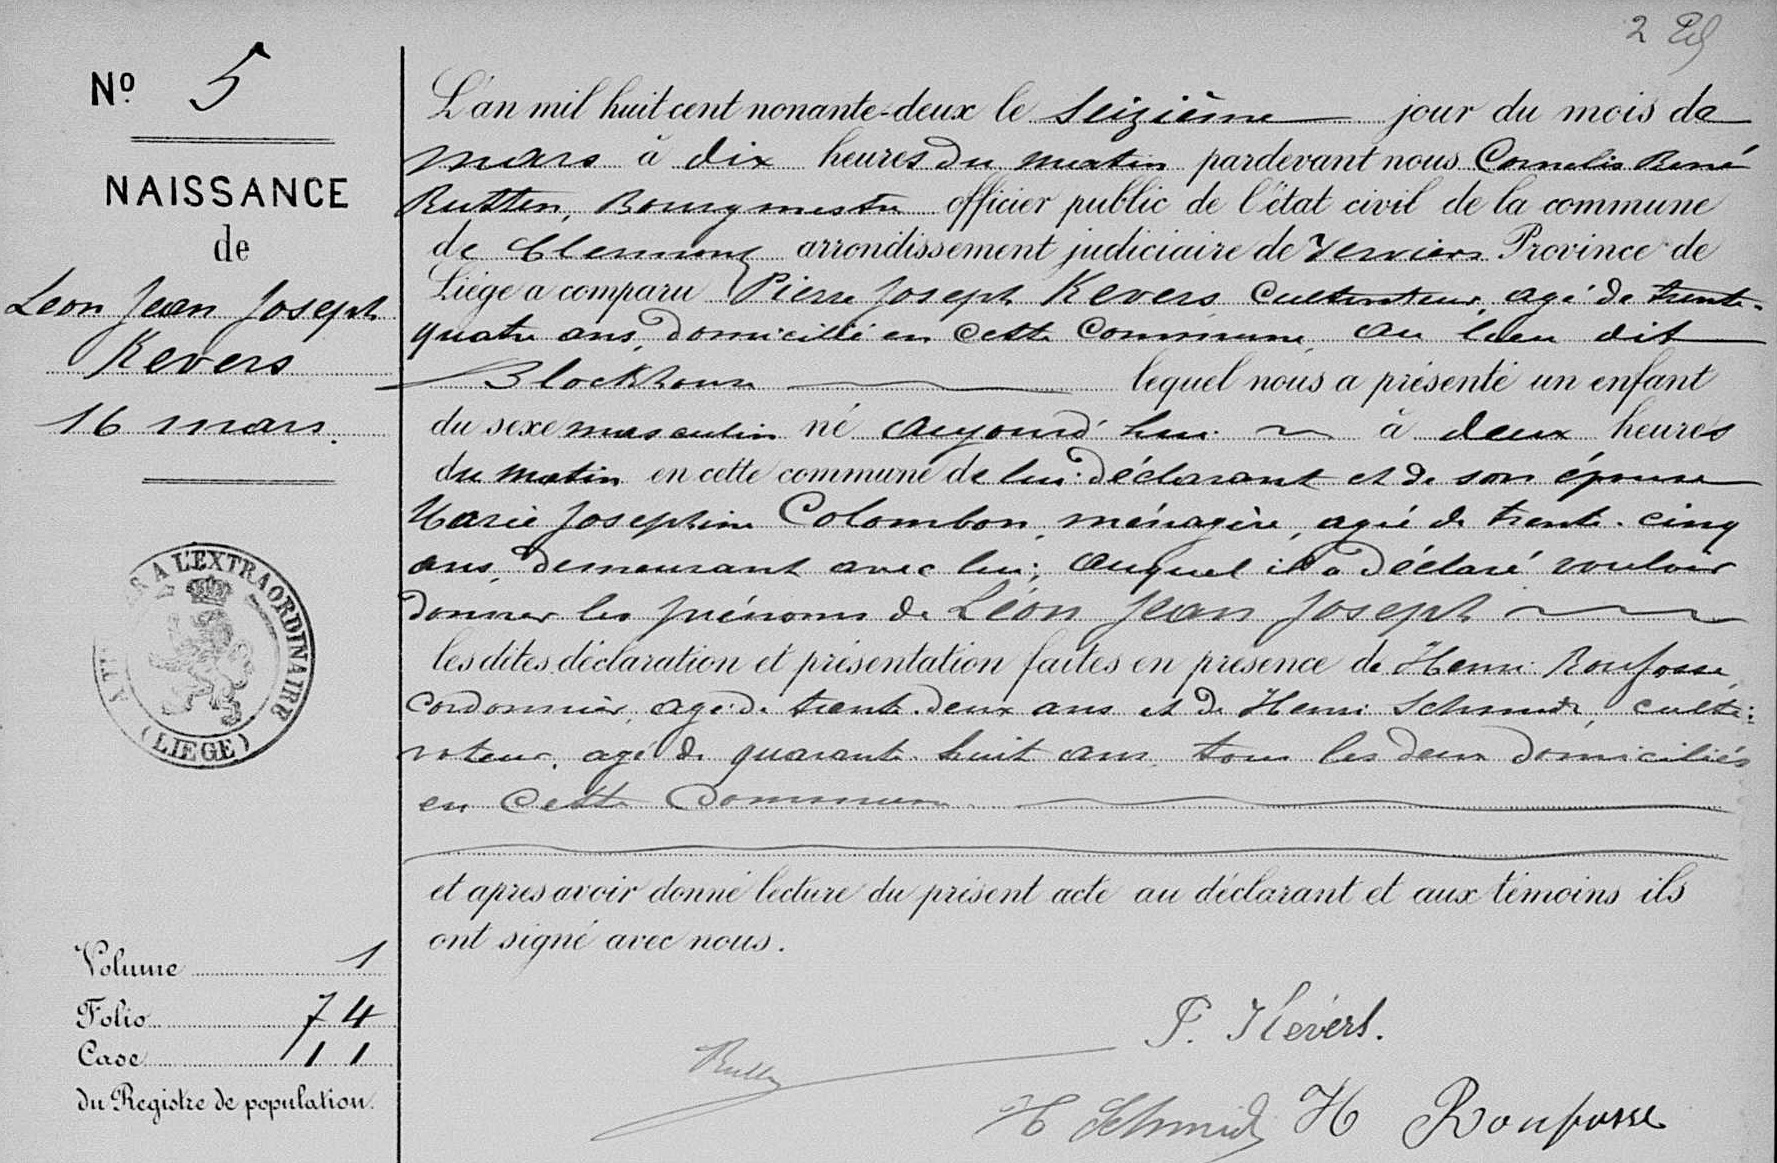 2
Nº 5
NAISSANCE
de
Leon Jean Joseph
Kevers
16 mars.
A L'EXTRAORDINAIRE
(LIEGE)
Volume 1
Folio 74
Case 11
du Registre de population.
L'an mil huit cent nonante-deux le seizième jour du mois de
mars à dix heures du matin pardevant nous Cornelis René
Rutten, Bourgmestre officier public de l'état civil de la commune
de Clermont arrondissement judiciaire de Verviers Province de
Liége a comparu Pierre Joseph Kevers, cultivateur, agé de trente-
quatre ans, domicilié en cette commune, au lieu dit
Blockhouse lequel nous a présenté un enfant
du sexe masculin né aujourd'hui à deux heures
du matin en cette commune de lui déclarant et de son épouse
Marie Josephine Colombon, ménagère, agée de trente-cinq
ans, demeurant avec lui; auquel il a déclaré vouloir
donner les prénoms de Léon Jean Joseph
les dites déclaration et présentation faites en présence de Henri Roufosse,
cordonnier, agé de trente-deux ans et de Henri Schmidt, culti-
vateur, agé de quarante-huit ans, tous les deux domiciliés
en cette commune.
et après avoir donné lecture du présent acte au déclarant et aux témoins ils
ont signé avec nous.
P. Kévers.
Rutten
H Schmidt H Roufosse